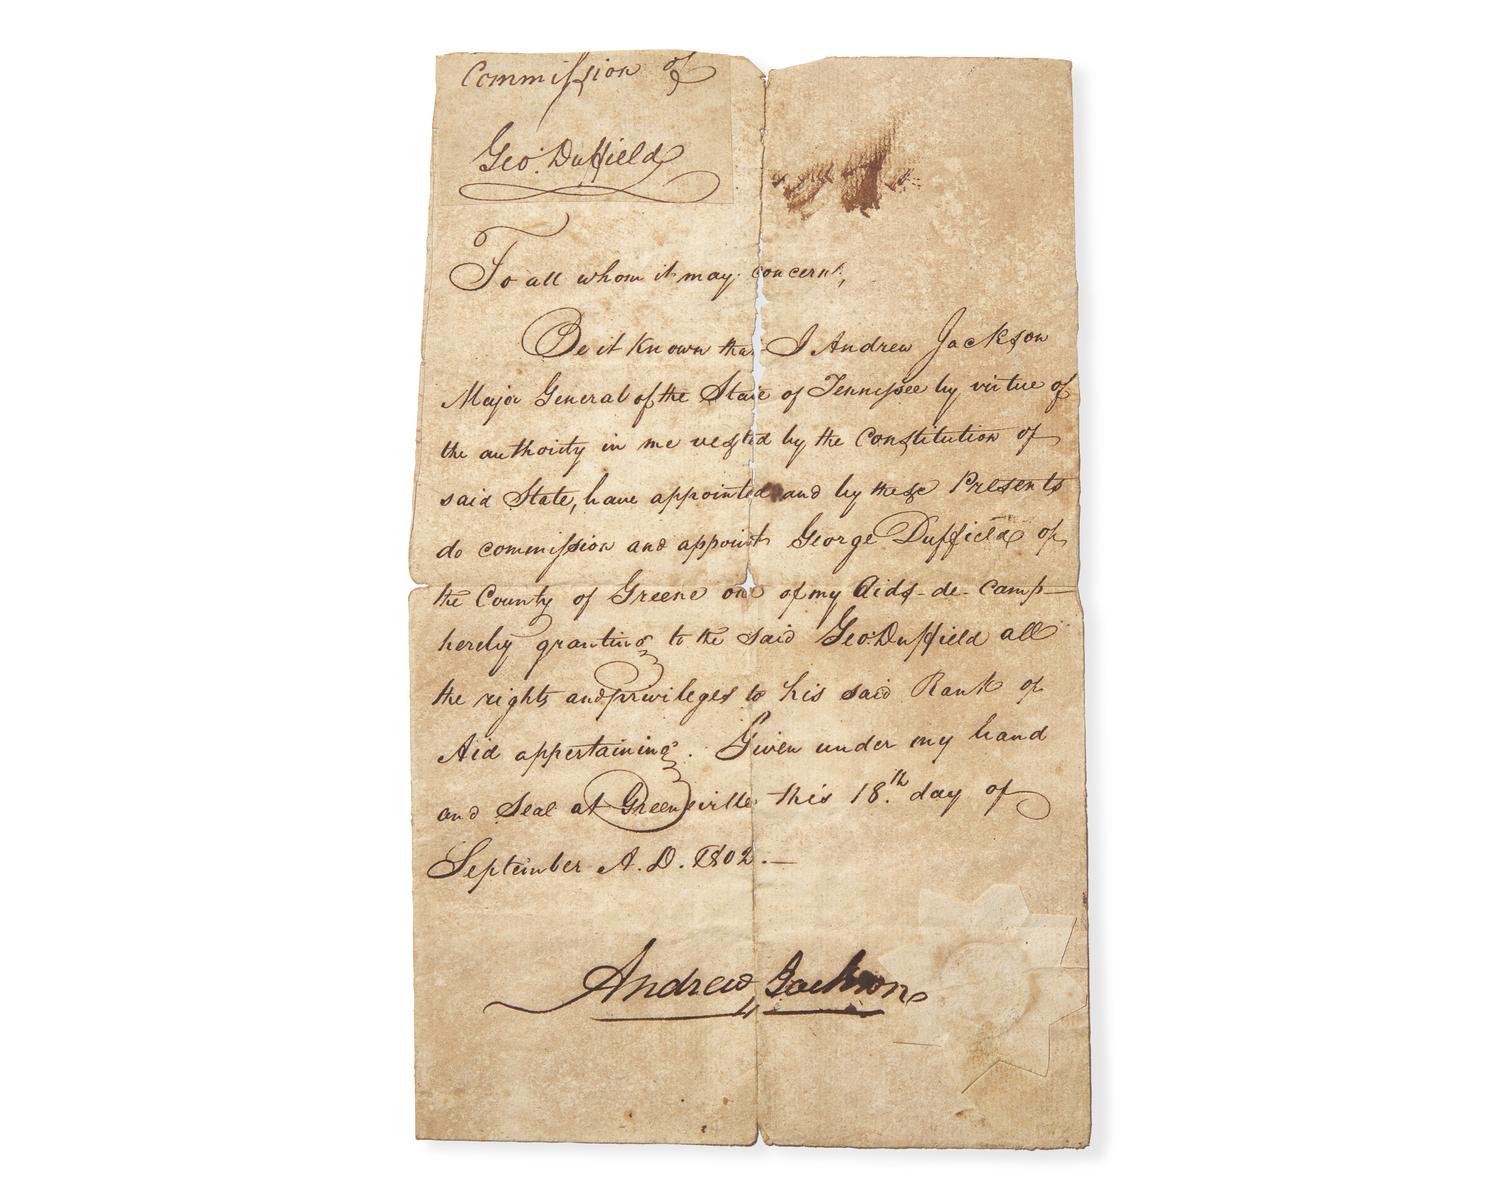 Commission of
Geo: Duffield
To all whom it may concern,
Be it known that I Andrew Jackson
Major General of the State of Tennissee by virtue of
the authority in me vested by the Constitution of
said State, have appointed and by these Presents
do commission and appoint George Duffield of
the County of Greene one of my Aids-de-camp—
hereby granting to the said Geo: Duffield all
the rights and privileges to his said Rank of
Aid appertaining. Given under my hand
and Seal at Greeneville this 18.th day of
September A.D. 1802.—
Andrew Jackson